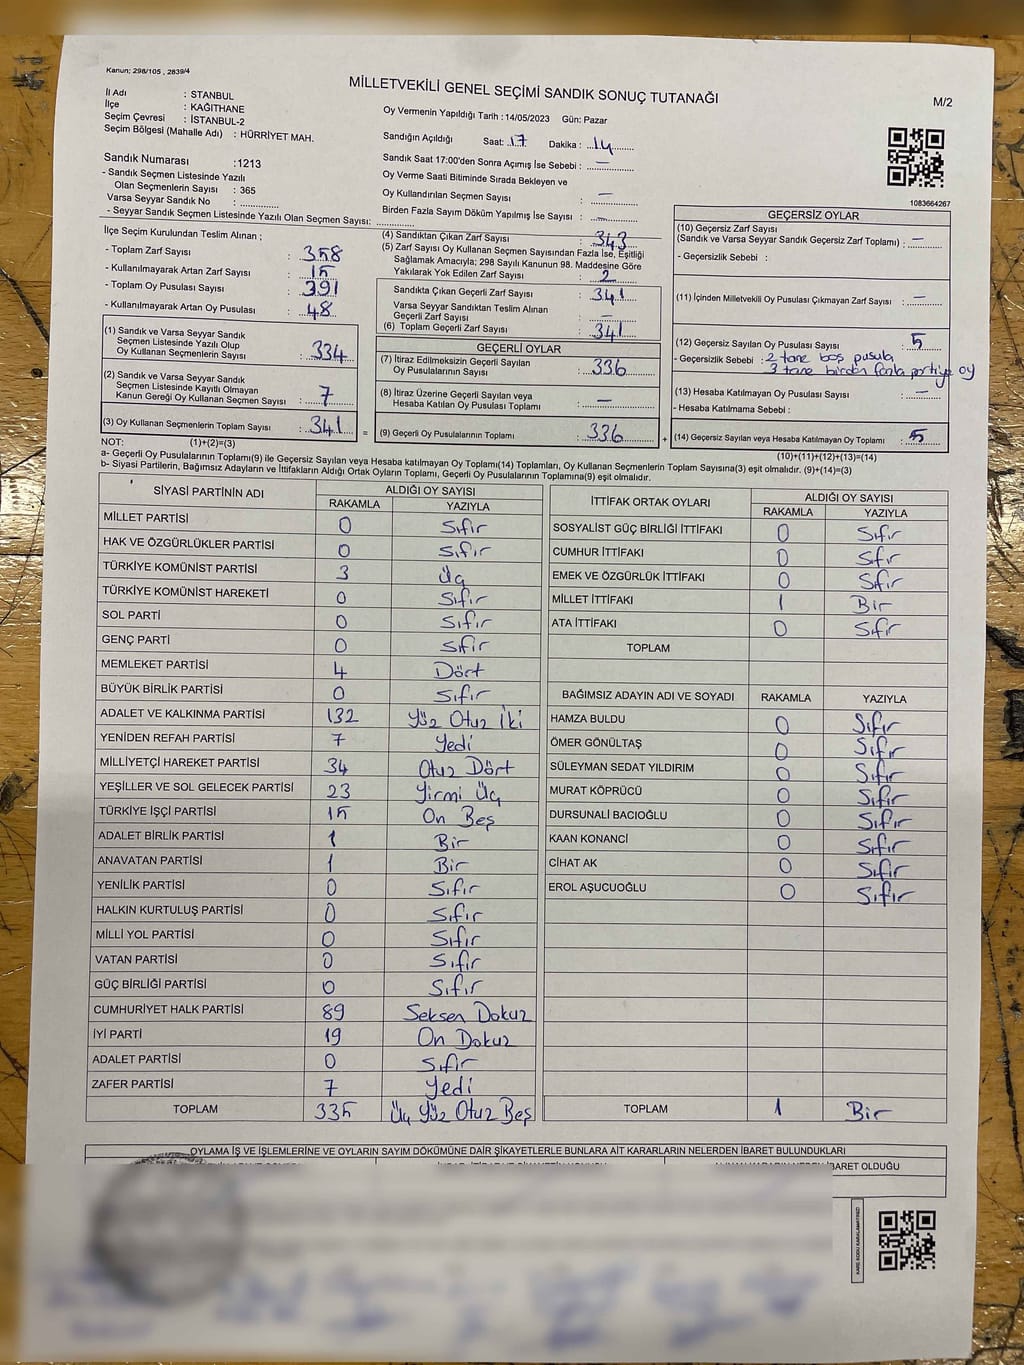 Kanun; 298/105 , 2839/4
MİLLETVEKİLİ GENEL SEÇİMİ SANDIK SONUÇ TUTANAĞI
M/2
İl Adı : STANBUL
İlçe : KAĞITHANE
Seçim Çevresi : İSTANBUL-2
Seçim Bölgesi (Mahalle Adı) : HÜRRİYET MAH.
Sandık Numarası :1213
- Sandık Seçmen Listesinde Yazılı
Olan Seçmenlerin Sayısı : 365
Varsa Seyyar Sandık No : ..............
- Seyyar Sandık Seçmen Listesinde Yazılı Olan Seçmen Sayısı: ..............
Oy Vermenin Yapıldığı Tarih : 14/05/2023 Gün: Pazar
Sandığın Açıldığı Saat: 17 Dakika : 14
Sandık Saat 17:00'den Sonra Açımış İse Sebebi : —
Oy Verme Saati Bitiminde Sırada Bekleyen ve
Oy Kullandırılan Seçmen Sayısı : —
Birden Fazla Sayım Döküm Yapılmış İse Sayısı : —
1083664267
İlçe Seçim Kurulundan Teslim Alınan ;
- Toplam Zarf Sayısı : 358
- Kullanılmayarak Artan Zarf Sayısı : 15
- Toplam Oy Pusulası Sayısı : 391
- Kullanılmayarak Artan Oy Pusulası : 48
(1) Sandık ve Varsa Seyyar Sandık
Seçmen Listesinde Yazılı Olup
Oy Kullanan Seçmenlerin Sayısı : 334
(2) Sandık ve Varsa Seyyar Sandık
Seçmen Listesinde Kayıtlı Olmayan
Kanun Gereği Oy Kullanan Seçmen Sayısı : 7
(3) Oy Kullanan Seçmenlerin Toplam Sayısı : 341
(4) Sandıktan Çıkan Zarf Sayısı : 343
(5) Zarf Sayısı Oy Kullanan Seçmen Sayısından Fazla İse, Eşitliği
Sağlamak Amacıyla; 298 Sayılı Kanunun 98. Maddesine Göre
Yakılarak Yok Edilen Zarf Sayısı : 2
Sandıkta Çıkan Geçerli Zarf Sayısı : 341
Varsa Seyyar Sandıktan Teslim Alınan
Geçerli Zarf Sayısı : —
(6) Toplam Geçerli Zarf Sayısı : 341
GEÇERLİ OYLAR
(7) İtiraz Edilmeksizin Geçerli Sayılan
Oy Pusulalarının Sayısı : 336
(8) İtiraz Üzerine Geçerli Sayılan veya
Hesaba Katılan Oy Pusulası Toplamı : —
= (9) Geçerli Oy Pusulalarının Toplamı : 336
GEÇERSİZ OYLAR
(10) Geçersiz Zarf Sayısı
(Sandık ve Varsa Seyyar Sandık Geçersiz Zarf Toplamı) : —
- Geçersizlik Sebebi :
(11) İçinden Milletvekili Oy Pusulası Çıkmayan Zarf Sayısı : —
(12) Geçersiz Sayılan Oy Pusulası Sayısı : 5
- Geçersizlik Sebebi : 2 tane boş pusula
3 tane birden fazla partiye oy
(13) Hesaba Katılmayan Oy Pusulası Sayısı : —
- Hesaba Katılmama Sebebi :
+ (14) Geçersiz Sayılan veya Hesaba Katılmayan Oy Toplamı : 5
NOT: (1)+(2)=(3)
(10)+(11)+(12)+(13)=(14)
a- Geçerli Oy Pusulalarının Toplamı(9) ile Geçersiz Sayılan veya Hesaba katılmayan Oy Toplamı(14) Toplamları, Oy Kullanan Seçmenlerin Toplam Sayısına(3) eşit olmalıdır. (9)+(14)=(3)
b- Siyasi Partilerin, Bağımsız Adayların ve İttifakların Aldığı Ortak Oyların Toplamı, Geçerli Oy Pusulalarının Toplamına(9) eşit olmalıdır.
SİYASİ PARTİNİN ADI ALDIĞI OY SAYISI
RAKAMLA YAZIYLA
MİLLET PARTİSİ 0 Sıfır
HAK VE ÖZGÜRLÜKLER PARTİSİ 0 Sıfır
TÜRKİYE KOMÜNİST PARTİSİ 3 Üç
TÜRKİYE KOMÜNİST HAREKETİ 0 Sıfır
SOL PARTİ 0 Sıfır
GENÇ PARTİ 0 Sıfır
MEMLEKET PARTİSİ 4 Dört
BÜYÜK BİRLİK PARTİSİ 0 Sıfır
ADALET VE KALKINMA PARTİSİ 132 Yüz Otuz İki
YENİDEN REFAH PARTİSİ 7 Yedi
MİLLİYETÇİ HAREKET PARTİSİ 34 Otuz Dört
YEŞİLLER VE SOL GELECEK PARTİSİ 23 Yirmi Üç
TÜRKİYE İŞÇİ PARTİSİ 15 On Beş
ADALET BİRLİK PARTİSİ 1 Bir
ANAVATAN PARTİSİ 1 Bir
YENİLİK PARTİSİ 0 Sıfır
HALKIN KURTULUŞ PARTİSİ 0 Sıfır
MİLLİ YOL PARTİSİ 0 Sıfır
VATAN PARTİSİ 0 Sıfır
GÜÇ BİRLİĞİ PARTİSİ 0 Sıfır
CUMHURİYET HALK PARTİSİ 89 Seksen Dokuz
İYİ PARTİ 19 On Dokuz
ADALET PARTİSİ 0 Sıfır
ZAFER PARTİSİ 7 Yedi
TOPLAM 335 Üç Yüz Otuz Beş
İTTİFAK ORTAK OYLARI ALDIĞI OY SAYISI
RAKAMLA YAZIYLA
SOSYALİST GÜÇ BİRLİĞİ İTTİFAKI 0 Sıfır
CUMHUR İTTİFAKI 0 Sfır
EMEK VE ÖZGÜRLÜK İTTİFAKI 0 Sfır
MİLLET İTTİFAKI 1 Bir
ATA İTTİFAKI 0 Sfır
TOPLAM
BAĞIMSIZ ADAYIN ADI VE SOYADI RAKAMLA YAZIYLA
HAMZA BULDU 0 Sıfır
ÖMER GÖNÜLTAŞ 0 Sıfır
SÜLEYMAN SEDAT YILDIRIM 0 Sıfır
MURAT KÖPRÜCÜ 0 Sıfır
DURSUNALİ BACIOĞLU 0 Sıfır
KAAN KONANCİ 0 Sıfır
CİHAT AK 0 Sıfır
EROL AŞUCUOĞLU 0 Sıfır
TOPLAM 1 Bir
OYLAMA İŞ VE İŞLEMLERİNE VE OYLARIN SAYIM DÖKÜMÜNE DAİR ŞİKAYETLERLE BUNLARA AİT KARARLARIN NELERDEN İBARET BULUNDUKLARI
İBARET OLDUĞU